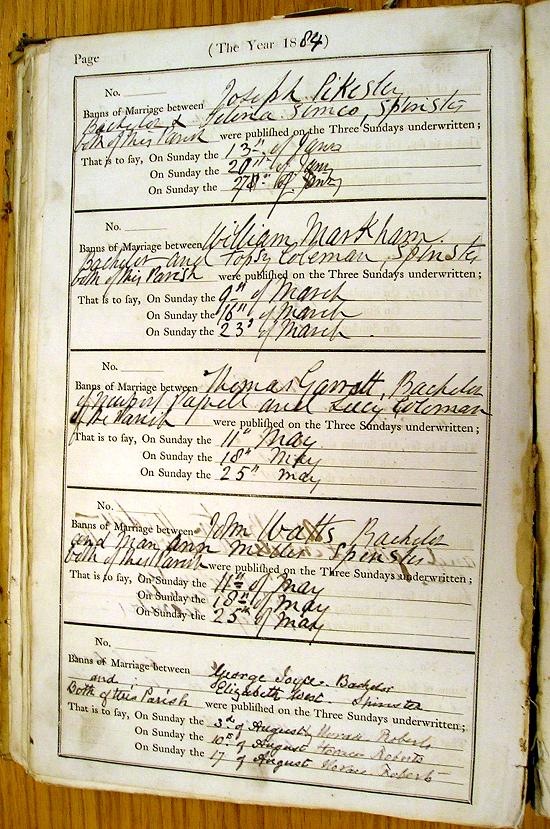 Page
(The Year 1884)
No.
Banns of Marriage between Joseph
Bachelor & Selina Simco, Spinster
both of this Parish were published on the Three Sundays underwritten;
That is to say, On Sunday the 13th of Jany
On Sunday the 20th of Jany
On Sunday the 27th of Jany
No.
Banns of Marriage between William Markham
Bachelor and Topsy Coleman Spinster
both of this Parish were published on the Three Sundays underwritten;
That is to say, On Sunday the 9th of March
On Sunday the 16th of March
On Sunday the 23d of March
No.
Banns of Marriage between Thomas Garratt, Bachelor
of Newport Pagnell and Lucy Coleman
of the Parish were published on the Three Sundays underwritten;
That is to say, On Sunday the 11th May
On Sunday the 18th May
On Sunday the 25th May
No.
Banns of Marriage between John Watts Bachelor
and Mary Ann Spinster
both of this Parish were published on the Three Sundays underwritten;
That is to say, On Sunday the 11th of May
On Sunday the 18th of May
On Sunday the 25th of May
No.
Banns of Marriage between George Joyce Bachelor
and Elizabeth West Spinster
Both of this Parish were published on the Three Sundays underwritten;
That is to say, On Sunday the 3d of August Roberts
On Sunday the 10th of August Roberts
On Sunday the 17 of August Roberts